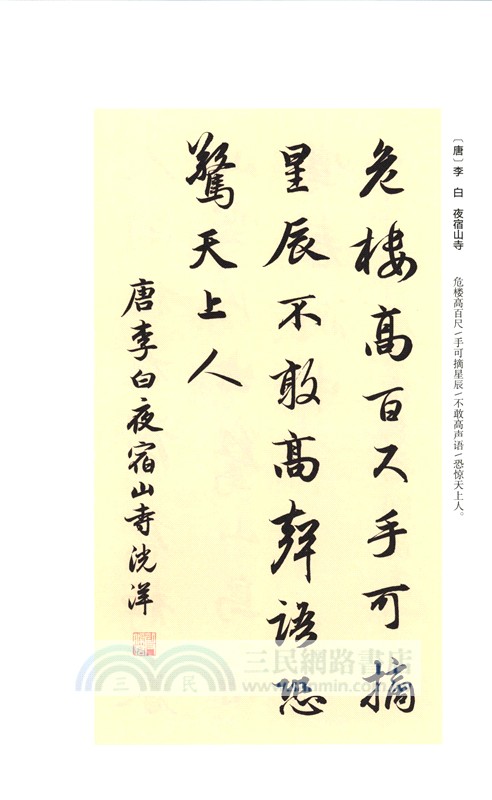 〔唐〕李 白 夜宿山寺 危楼高百尺/手可摘星辰/不敢高声语/恐惊天上人。
危樓高百尺手可摘
星辰不敢高聲語恐
驚天上人
唐李白夜宿山寺洸洋
三民網路書店
三 民
www.sanmin.com.tw